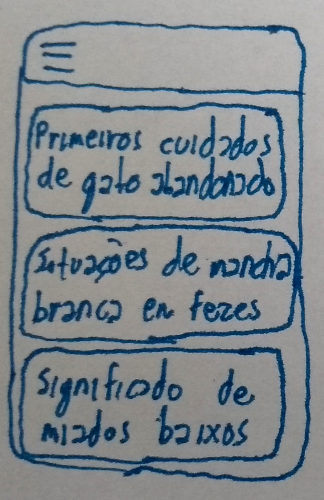 Primeiros cuidados
de gato abandonado
Situações de mancha
branca em fezes
Significado de
miados baixos